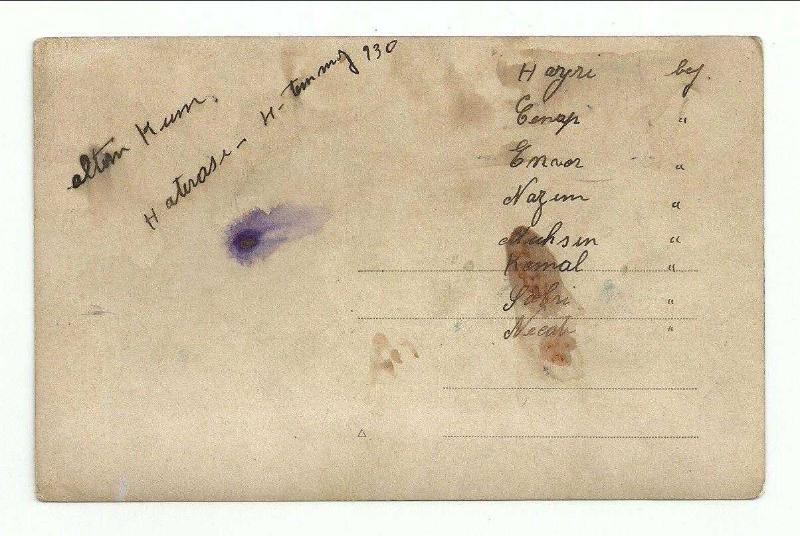 altın Kum.
Hatırası - H - temmuz 930
Hayri bey.
Cenap "
Enver "
Nazım "
Muhsin "
Kemal "
Sabri "
Necati "